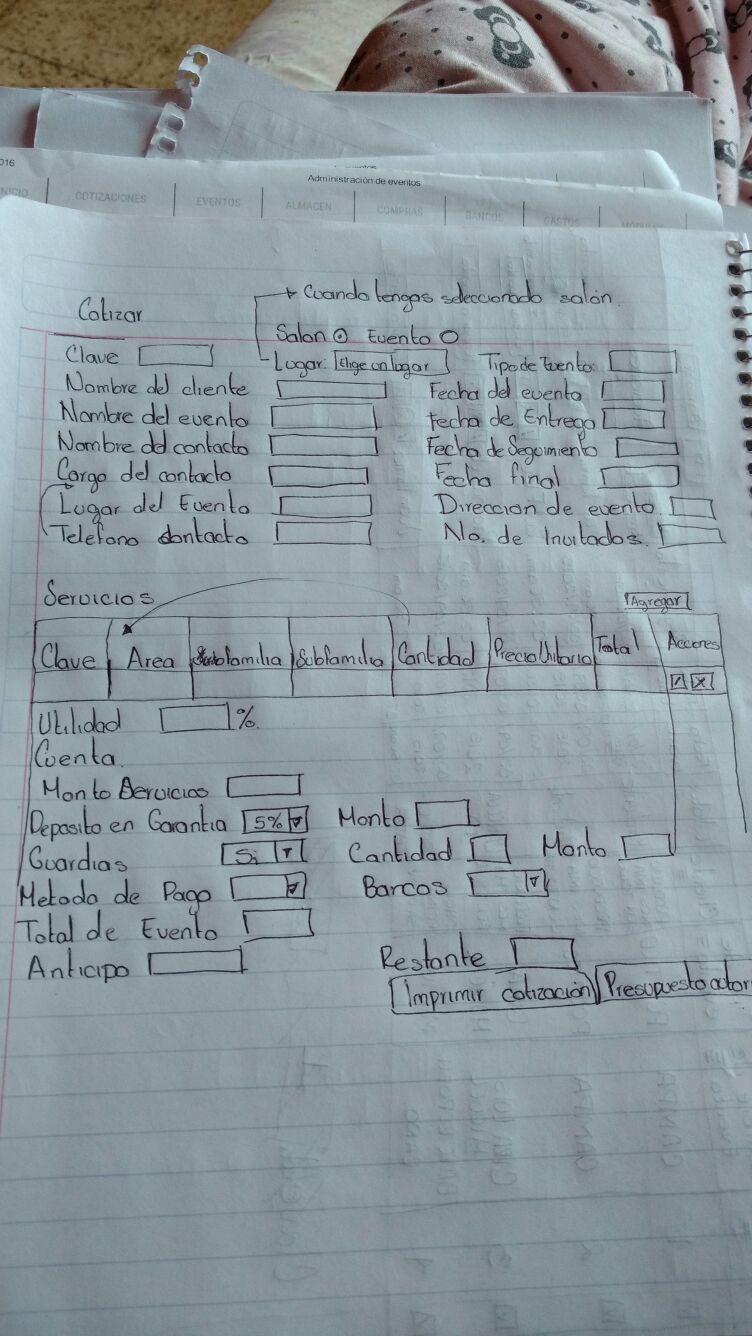 016
Administración de eventos
INICIO COTIZACIONES EVENTOS ALMACEN COMPRAS BANCOS GASTOS
Cuando tengas seleccionado salón.
Cotizar
Salon Evento
Clave Lugar: Elige un lugar Tipo de Evento:
Nombre del cliente Fecha del evento
Nombre del evento Fecha de Entrega
Nombre del contacto Fecha de Seguimiento
Cargo del contacto Fecha final
Lugar del Evento Direccion de evento
Telefono contacto No. de Invitados.
Servicios Agregar
Clave Area familia Subfamilia Cantidad Precio Unitario Total Acciones
X
Utilidad %
Cuenta.
Monto Servicios
Deposito en Garantia 5% Monto
Guardias Si Cantidad Monto
Metodo de Pago Barcos
Total de Evento
Anticipo Restante
Imprimir cotización Presupuesto